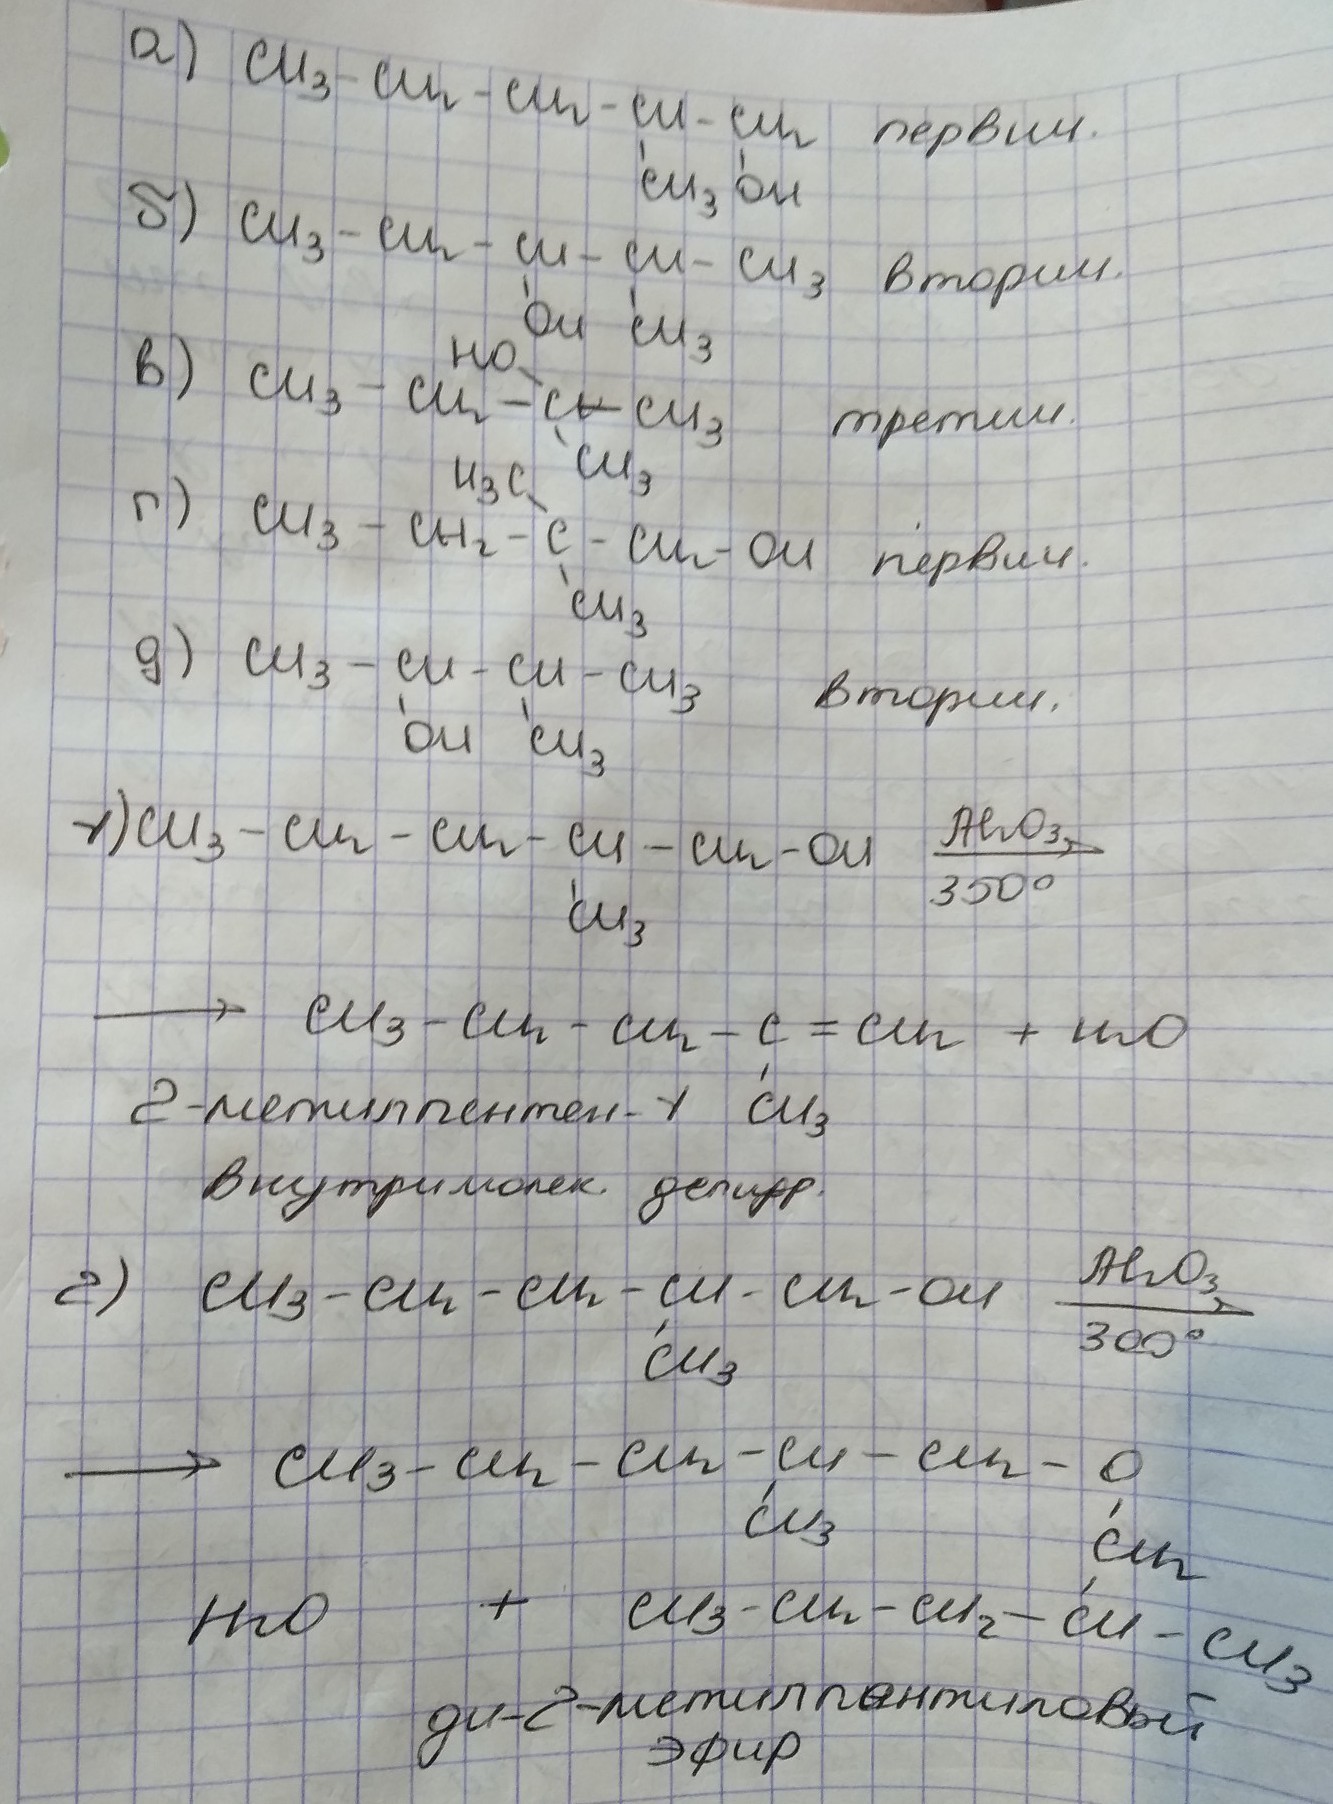 а) CH3 - CH2 - CH2 - CH - CH2 первич.
CH3 OH
б) CH3 - CH2 - CH - CH - CH3 вторич.
OH CH3
HO
в) CH3 - CH2 - C - CH3 третич.
CH3
H3C
г) CH3 - CH2 - C - CH2 - OH первич.
CH3
д) CH3 - CH - CH - CH3 вторич.
OH CH3
1) CH3 - CH2 - CH2 - CH - CH2 - OH Al2O3 →
350°
CH3
→ CH3 - CH2 - CH2 - C = CH2 + H2O
2-метилпентен-1 CH3
внутримолек. дегидр.
2) CH3 - CH2 - CH2 - CH - CH2 - OH Al2O3 →
300°
CH3
→ CH3 - CH2 - CH2 - CH - CH2 - O
CH3 CH2
H2O + CH3 - CH2 - CH2 - CH - CH3
ди-2-метилпентиловый
эфир